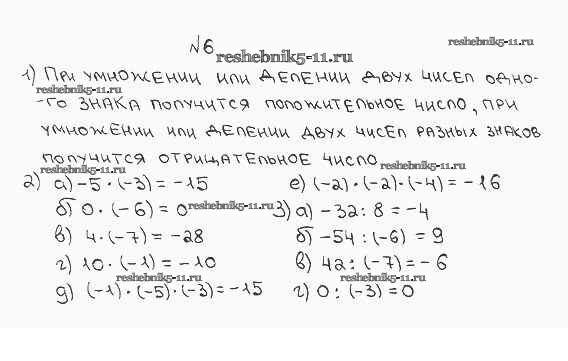 №6
reshebnik5-11.ru
reshebnik5-11.ru
1) ПРИ УМНОЖЕНИИ ИЛИ ДЕЛЕНИИ ДВУХ ЧИСЕЛ ОДНО-
reshebnik5-11.ru
-ГО ЗНАКА ПОЛУЧИТСЯ ПОЛОЖИТЕЛЬНОЕ ЧИСЛО, ПРИ
УМНОЖЕНИИ ИЛИ ДЕЛЕНИИ ДВУХ ЧИСЕЛ РАЗНЫХ ЗНАКОВ
ПОЛУЧИТСЯ ОТРИЦАТЕЛЬНОЕ ЧИСЛО
reshebnik5-11.ru
reshebnik5-11.ru
2) а) -5 · (-3) = -15
б) 0 · (-6) = 0
reshebnik5-11.ru
в) 4 · (-7) = -28
г) 10 · (-1) = -10
reshebnik5-11.ru
д) (-1) · (-5) · (-3) = -15
е) (-2) · (-2) · (-4) = -16
3) а) -32 : 8 = -4
б) -54 : (-6) = 9
в) 42 : (-7) = -6
reshebnik5-11.ru
г) 0 : (-3) = 0